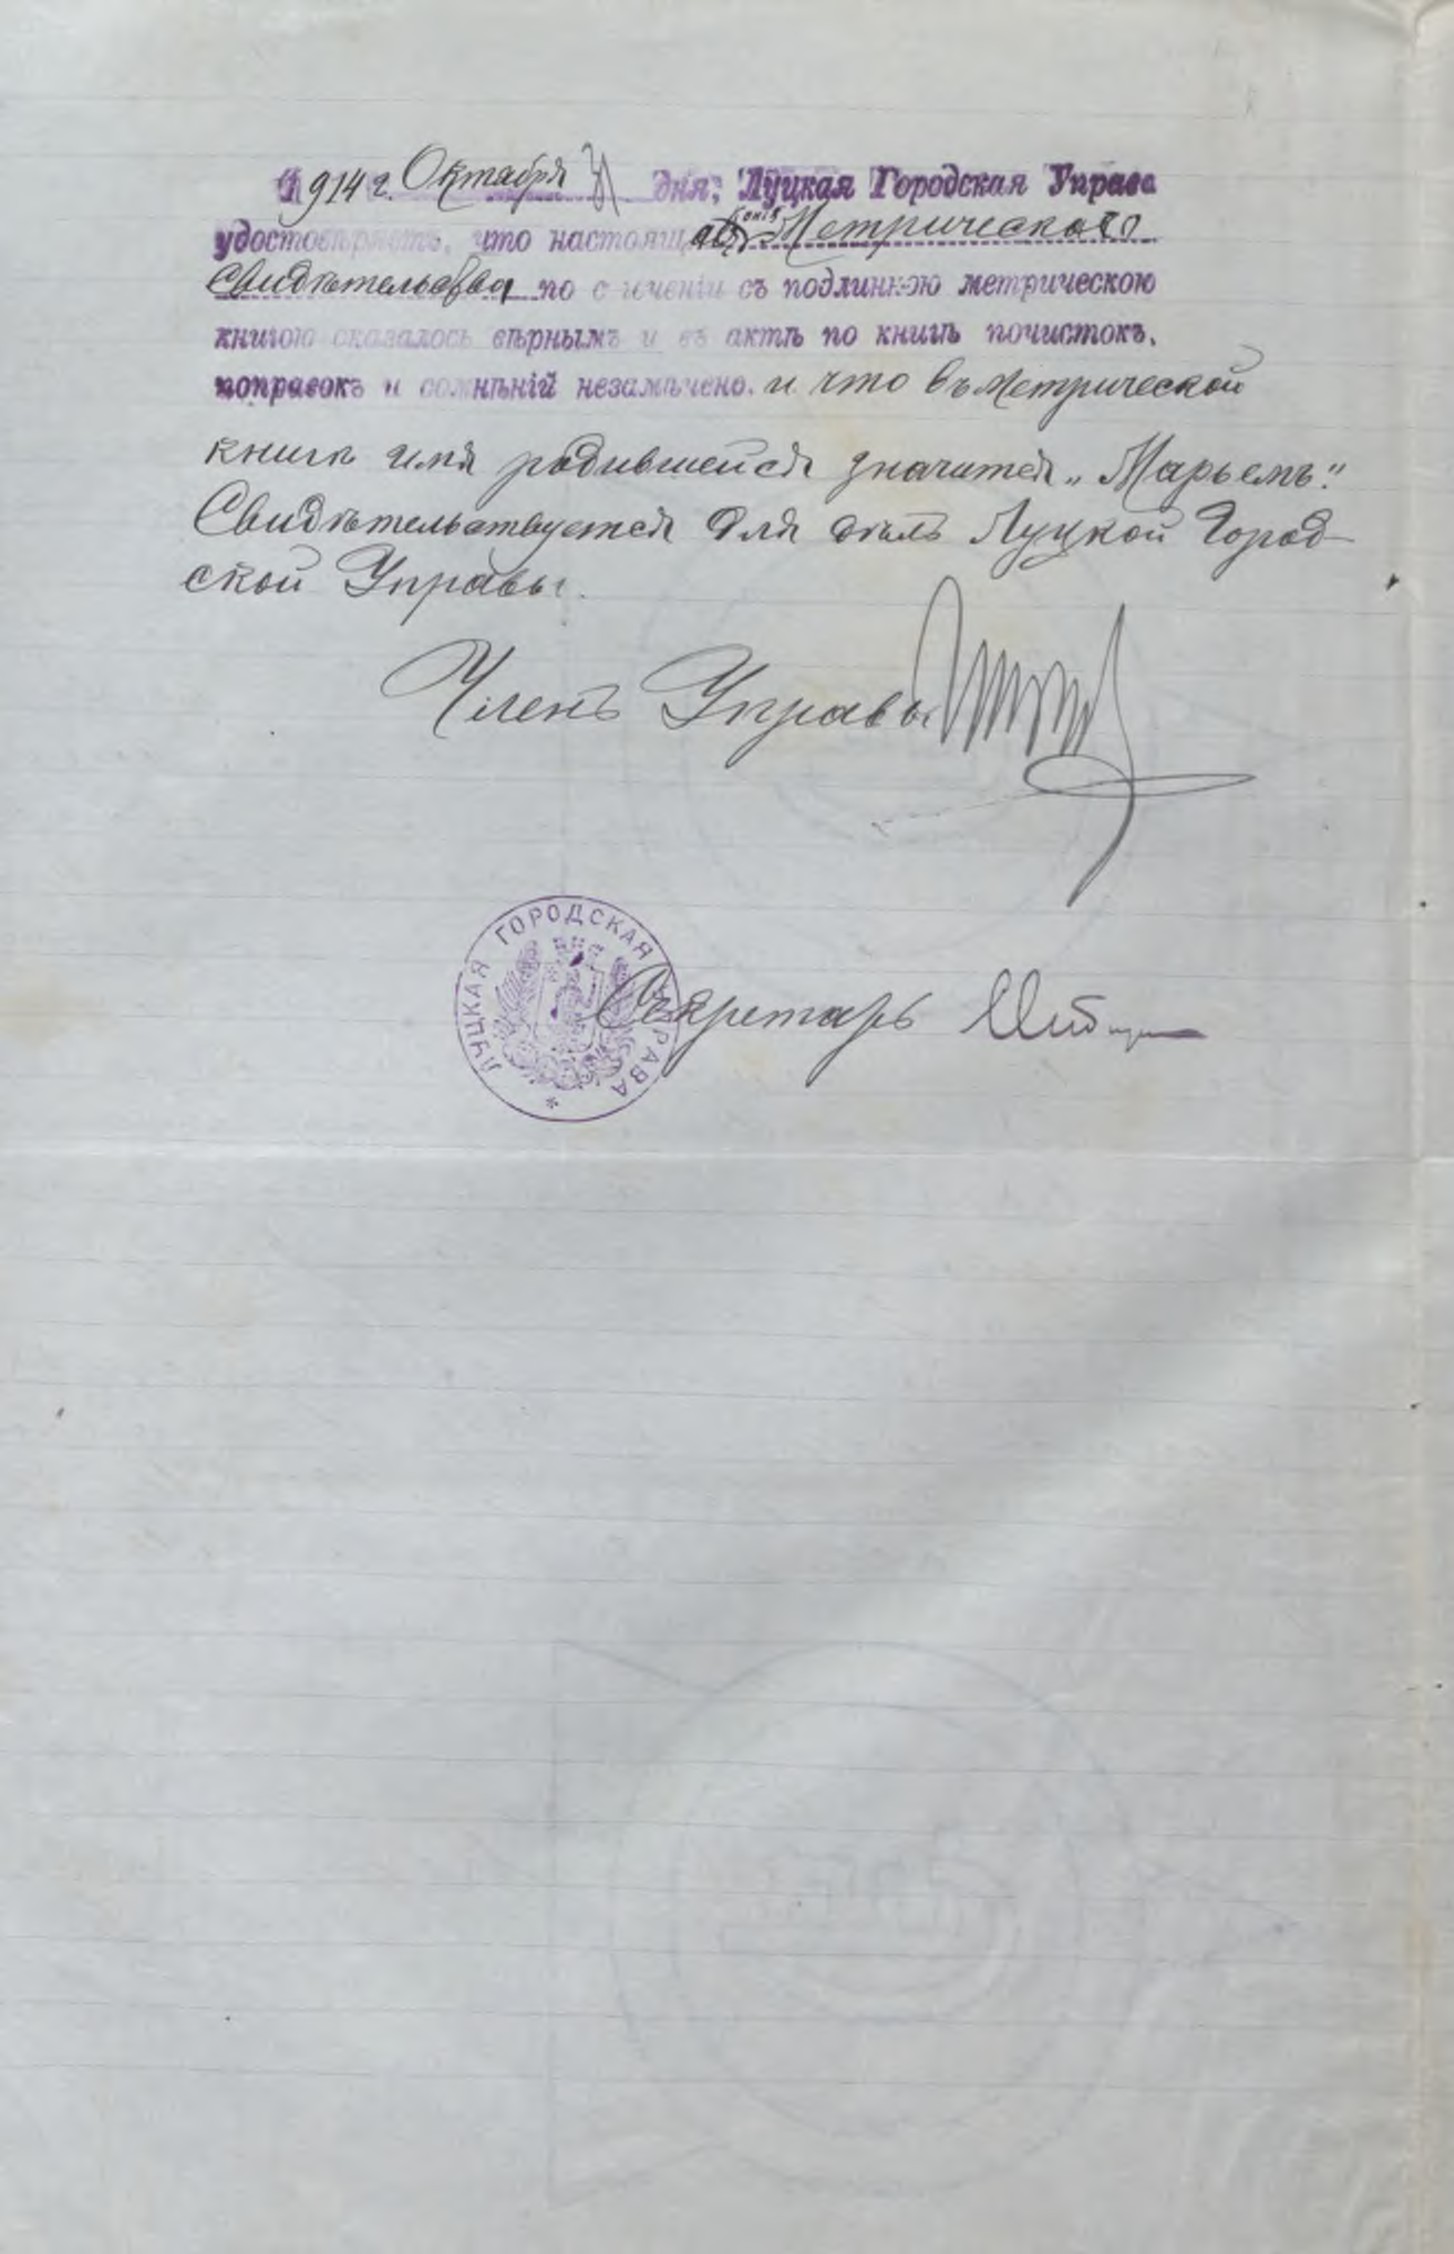 1914 г. Октября 31 дня, Луцкая Городская Управа
удостовѣряетъ, что настоящая копія Метрическаго
Свидѣтельства по сличеніи съ подлинною метрическою
книгою оказалось вѣрнымъ и въ актѣ по книгѣ почистокъ,
поправокъ и сомнѣній незамѣчено. и что въ метрической
книгѣ имя родившейся значится „Марьемъ."
Свидѣтельствуется для дѣлъ Луцкой Город-
ской Управы.
Членъ Управы
ЛУЦКАЯ ГОРОДСКАЯ УПРАВА
Секретарь